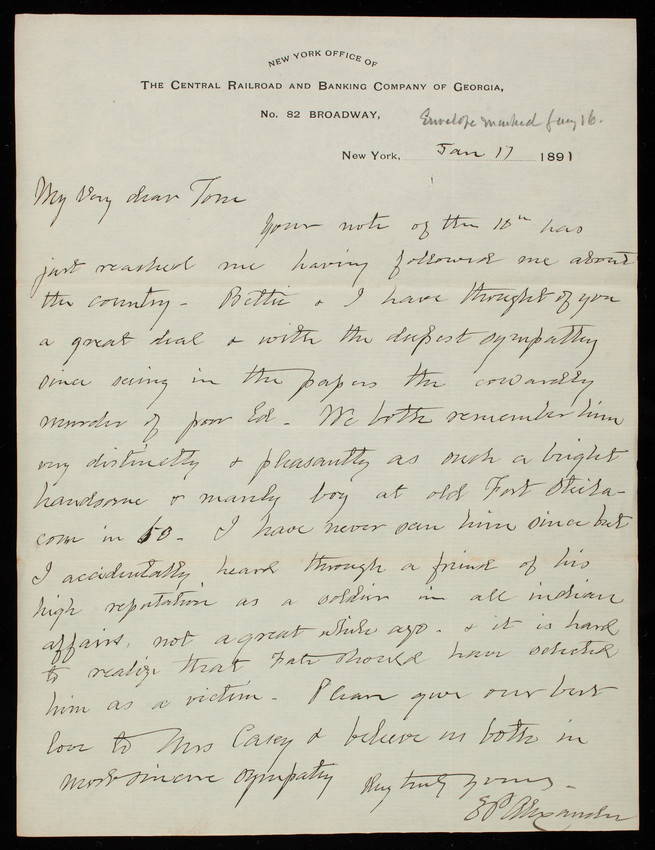 NEW YORK OFFICE OF
THE CENTRAL RAILROAD AND BANKING COMPANY OF GEORGIA,
No. 82 BROADWAY,
Envelope marked Jany 16.
New York, Jan 17 1891
My Very dear Tom
Your note of the 10th has
just reached me having followed me about
the country - Bettie & I have thought of you
a great deal & with the deepest sympathy
since seeing in the papers the cowardly
murder of poor Ed. We both remember him
very distinctly & pleasantly as such a bright
handsome & manly boy at old Fort Steila-
coom in 60 - I have never seen him since but
I accidentally heard through a friend of his
high reputation as a soldier in all indian
affairs, not a great while ago - & it is hard
to realize that Fate should have selected
him as a victim - Please give our best
love to Mrs Casey & believe us both in
most sincere sympathy Very truly yours -
EP Alexander